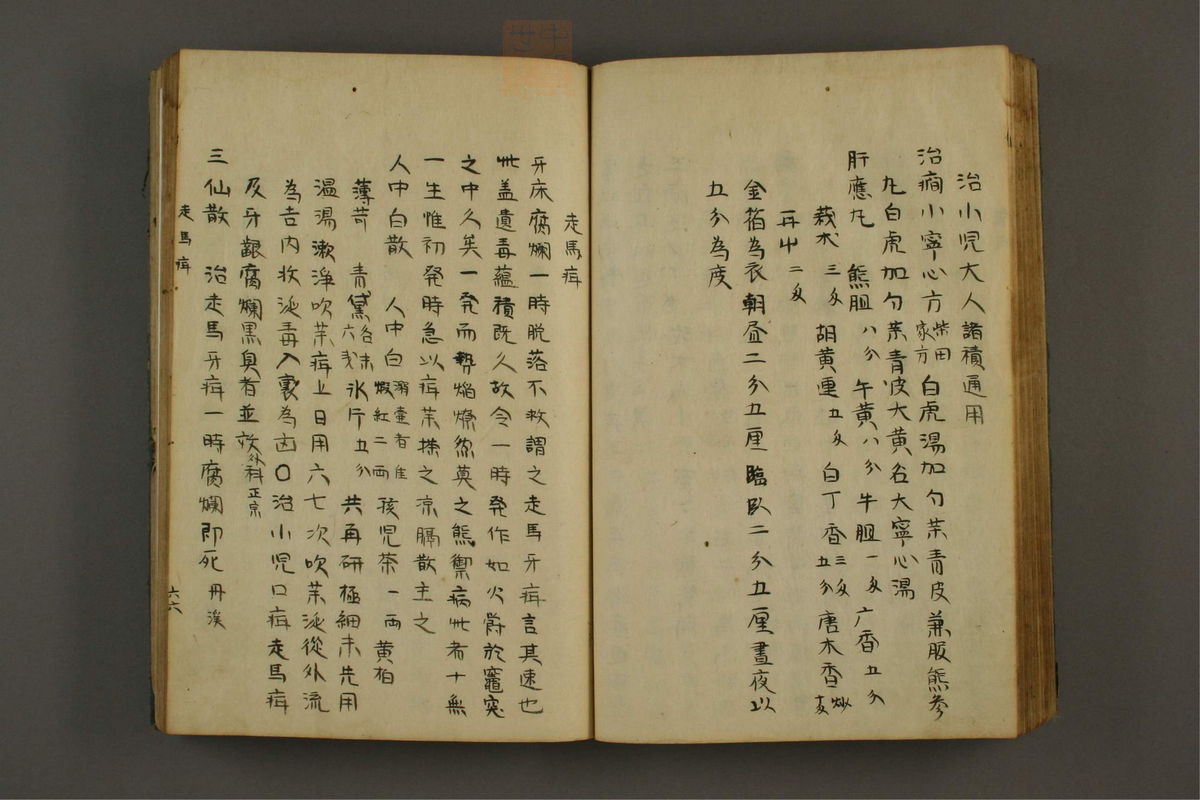 治小児大人諸積通用
治癇小寧心方柴田家方白虎湯加勺茉青皮兼服熊参
九白虎加勺茉青皮大黄名大寧心湯
肝應九 熊胆八分 午黄八分 牛胆一匁 广香五分
莪朮三匁 胡黄連五匁 白丁香三匁五分 唐木香炒
二匁
金箔為衣朝昼二分五厘臨臥二分五厘晝夜以
五分為度
走馬疳
牙床腐爛一時脱落不救謂之走馬牙疳言其速也
此盖遺毒蘊積既久故令一時発作如火爵於竈突
之中久矣一発而勢焔燎莫之熊禦病此者十無
一生惟初発時急以疳茉搽之凉膈散主之
人中白散 人中白溺壷者佳煆紅二両 孩児茶一両 黄柏
薄苛 青黛各末六戔 氷片五分 共再研極細末先用
温湯漱淨吹茉疳上日用六七次吹茉涎從外流
為吉内收涎毒入裏為凶〇治小児口疳走馬疳
及牙齦腐爛黒臭者並效外科正宗
三仙散 治走馬牙疳一時腐爛即死 丹渓
走馬疳
六六